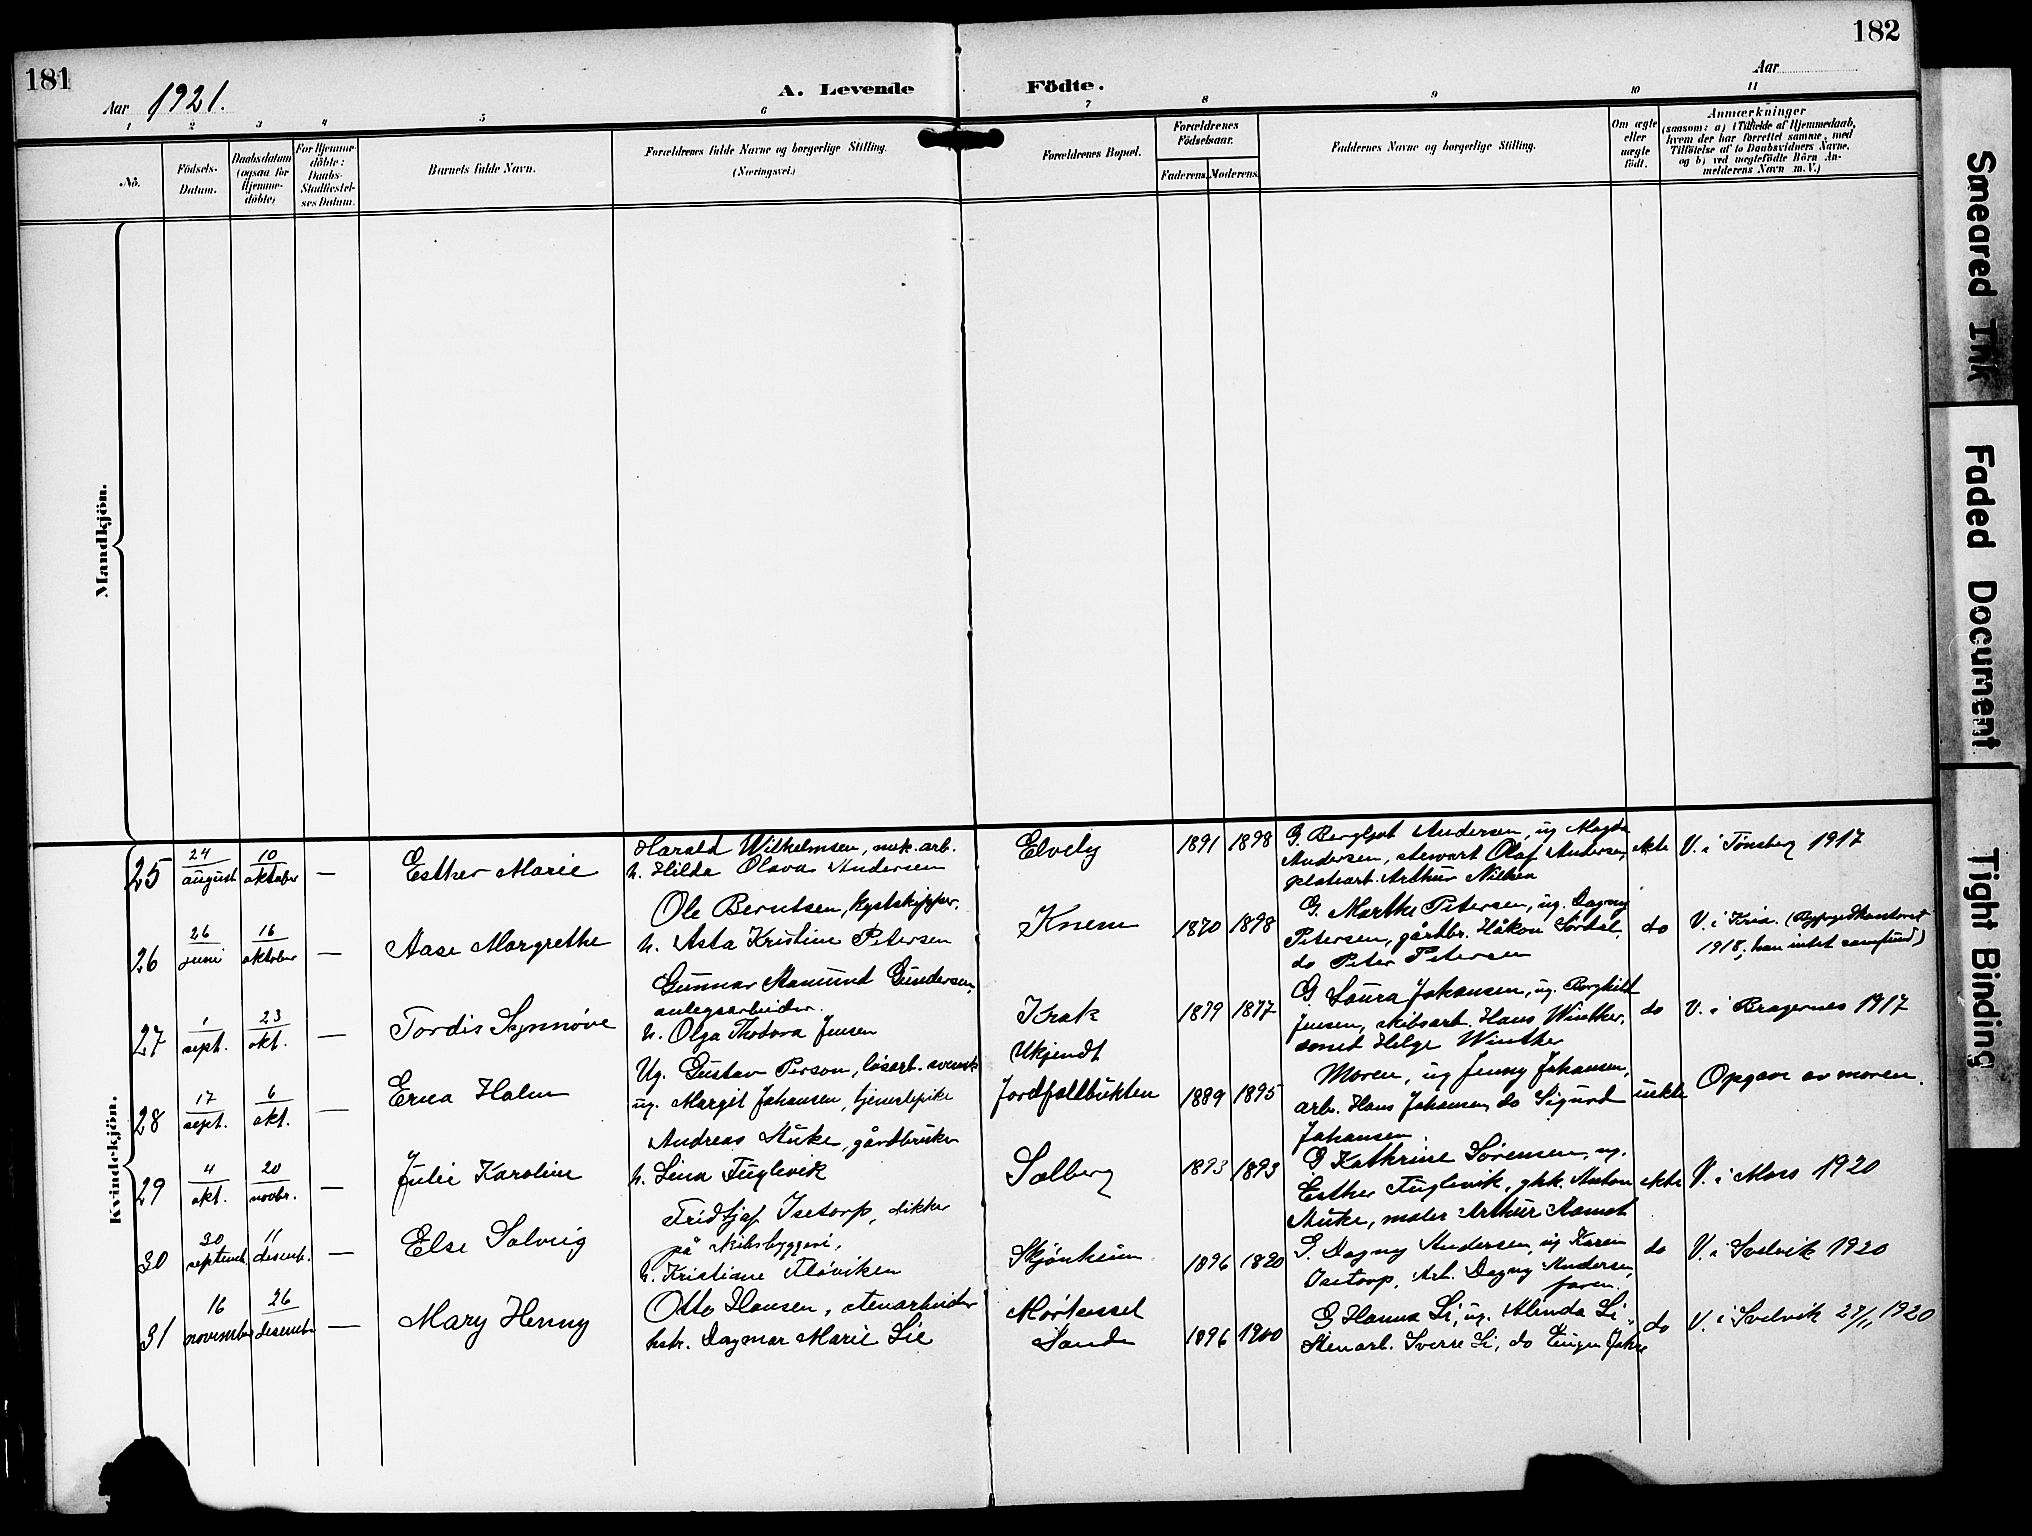 181
182
Aar 1921.
A. Levende Födte.
Aar
1 2 3 4 5 6 7 8 9 10 11
No.
Födsels-Datum.
Daabsdatum (ogsaa for Hjemme-döbte)
For Hjemme-döbte: Daabs-Stadfæstel-ses Datum.
Barnets fulde Navn.
Forældrenes fulde Navne og borgerlige Stilling.
(Næringsvei.)
Forældrenes Bopæl.
Forældrenes Födselsaar.
Faderens. Moderens.
Faddernes Navne og borgerlige Stilling.
Om ægte eller uægte födt.
Anmærkninger
(saasom: a) i Tilfælde af Hjemmedaab, hvem der har forrettet samme, med Tilföielse af to Daabsvidners Navne, og b) ved uægtefödte Börn An-melderens Navn m. V.)
Mandkjön.
Kvindekjön.
25 24/august 10/oktober — Esther Marie
Harald Wilhelmsen, mek. arb.
h. Hilda Olava Andersen
Elvely 1891 1898
G. Bergljot Andersen, ug Magda
Andersen, stewart Olaf Andersen,
platearb. Arthur Nilsen
ekte V. i Tønsberg 1917
26 26/juni 16/oktober — Aase Margrethe
Ole Berntsen, kystskipper.
h. Asta Kristine Petersen
Knem 1870 1898
G. Marthe Petersen, ug. Dagny
Petersen, gårdbr. Håkon
do Peter Petersen
do V. i Kria. (Byfogedkontoret
1918, han intet samfund)
27 1/sept. 23/okt. — Tordis Synnøve
Gunnar Gundersen,
anlegsarbeider.
h. Olga Thodora Jensen
Krak 1879 1877
G. Laura Johansen, ug. Borghild
Jensen, skibsarb. Hans Winther,
Helge Winther
do V. i Bragernes 1917
28 17/sept. 6/okt. — Erna Halm
Ug. Gustav Person, løsarb. svensk
ug. Margit Johansen, tjenestepike
Ukjendt
Jordfaldbukten 1889 1895
Moren, ug Jenny Johansen,
arb. Hans Johansen, do Sigurd
Johansen.
uekte Opgave av moren.
29 4/okt. 20/novbr. — Julie Karoline
Andreas Stuke, gårdbruker
h. Lina Fuglevik
Solberg 1893 1893
G Kathrine Sørensen, ug.
Esther Fuglevik, gbk. Anton
Stuke, maler Arthur
ekte V. i Moss 1920
30 30/septemb. 11/desemb. — Else Solveig
Fridtjof Isetorp, dikker
på skibsbyggeri,
h. Kristiane Fløviken
Skjønheim 1896 1820
G. Dagny Andersen, ug Karen
Isetorp, Arb. Dagny Andersen,
faren.
do V. i Svelvik 1920
31 16/november 26/desembr — Mary Henny
Otto Hansen, stenarbeider
hstr. Dagmar Marie Lie
Sande 1896 1900
G Hanna Li, ug. Alinda Li
Stenarb. Sverre Li, do
do V. i Svelvik 27/11 1920
Smeared Ink
Faded Document
Tight Binding